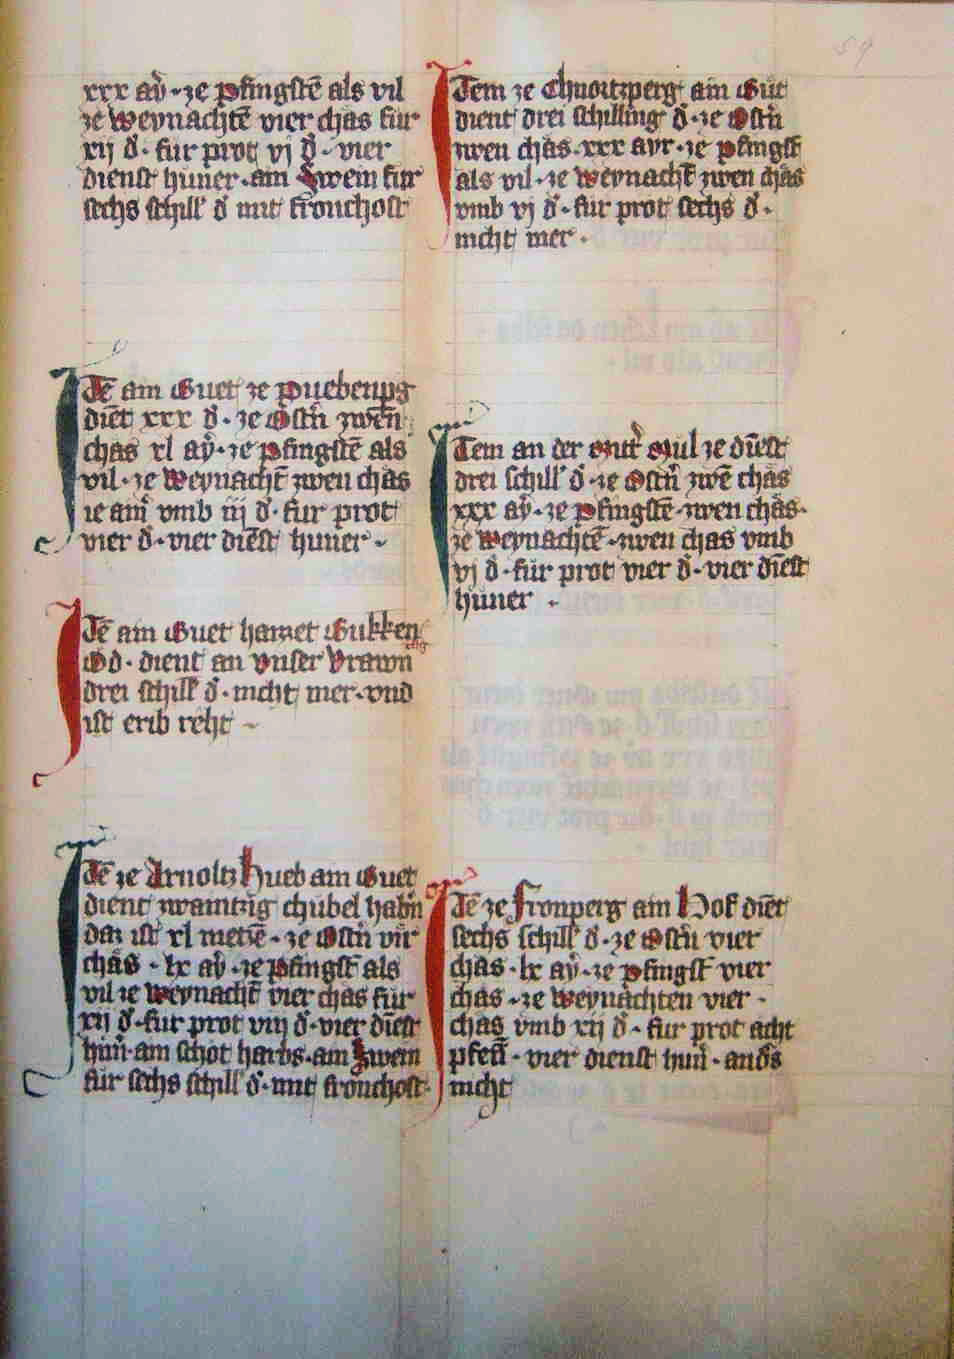 xxx aẏ · ze Pfingstē als vil
ze Weynachtē vier chas fur
xij đ · fur prot vj đ · vier
dienst huner · am Swein fur
sechs schill đ mit fronchost
Jtē am Guet ze
diēt xxx đ · ze Ostn̄ zwen
chas xl aẏ · ze Pfingstē als
vil · ze Weynacht̄ zwen chas
ie ain̄ vmb iij đ · fur prot
vier đ · vier diēst huner ·
Jtē am Guet haizzet Gukken
Öd · dient an vnser Vrawn
drei schill đ · nicht mer · vnd
ist erib reht
Jtē ze Arnoltz Hueb am Guet
dient zwaintzig chubel habn̄
daz ist xl metzē · ze Ostn̄ vir̄
chäs · lx aẏ · ze Pfingst̄ als
vil ze Weynacht̄ vier chas fur
xij đ · fur prot viij đ · vier diēst
hun̄ · am schot harbs · am Swein
fur sechs schill đ · mit fronchost
59
Jtem ze Chnoltzperg am Gut
dient drei schilling đ · ze Ostn̄
zwen chäs · xxx ayr · ze Pfingst̄
als vil · ze Weynacht̄ zwen chäs
vmb vj đ · fur prot sechs đ ·
nicht mer ·
Jtem an der Mul ze diēst
drei schill đ · ze Ostn̄ zwē chäs
xxx aẏ · ze Pfingstē · zwen chäs ·
ze Weynachtē · zwen chas vmb
vj đ · für prot vier đ · vier diēst
hüner ·
Jtē ze Fronperg am Hof diēt
sechs schill đ · ze Ostn̄ vier
chas · lx aẏ · ze Pfingst̄ vier
chas · ze Weynächten vier ·
chas vmb xij đ · fur prot acht
pfen̄ · vier dienst hun̄ · anđs
nicht